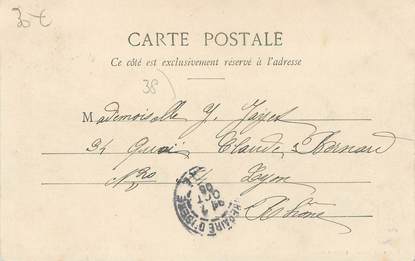 35€
CARTE POSTALE
Ce côté est exclusivement réservé à l'adresse
38
Mademoiselle Y.
34 Quai Claude Bernard
Lyon
Rhône